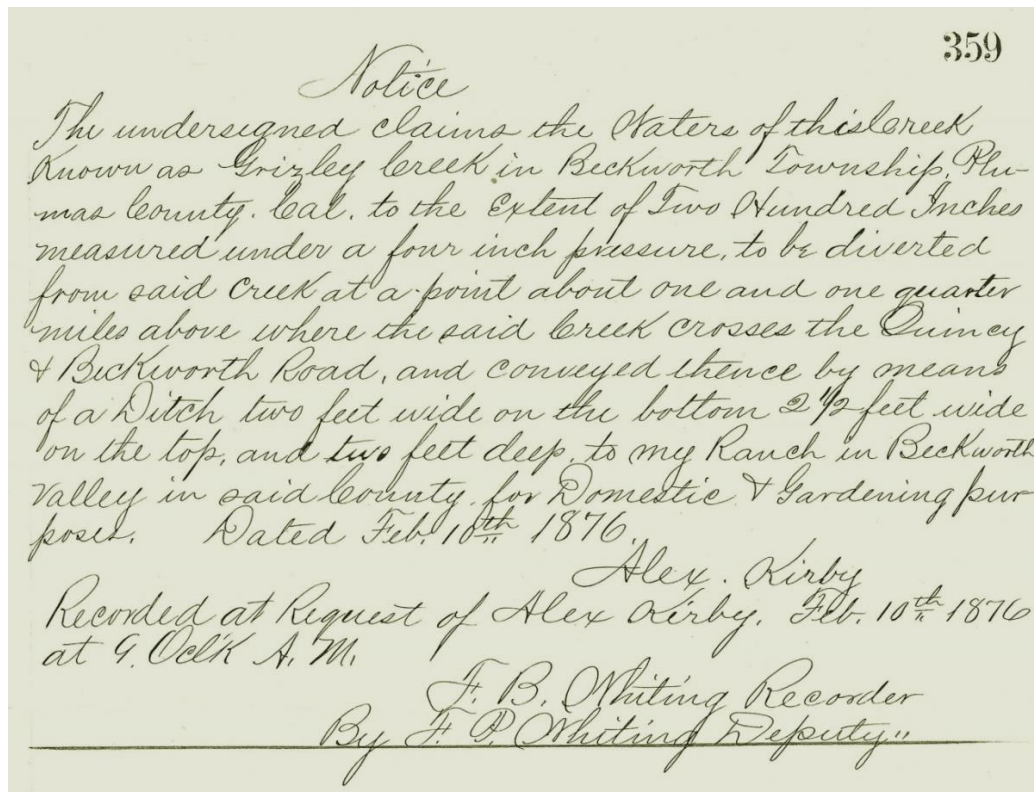 359
Notice
The undersigned claims the Waters of this Creek
Known as Grizley Creek in Beckworth Township, Plu-
mas County. Cal. to the Extent of Two Hundred Inches
measured under a four inch pressure, to be diverted
from said Creek at a point about one and one quarter
miles above where the said Creek crosses the Quincy
& Beckworth Road, and conveyed thence by means
of a Ditch two feet wide on the bottom 2 1/2 feet wide
on the top, and two feet deep, to my Ranch in Beckworth
Valley in said County, for Domestic & Gardening pur-
poses. Dated Feb. 10th 1876.
Alex. Kirby
Recorded at Request of Alex Kirby. Feb. 10th 1876
at 9. Oclk A. M.
F. B. Whiting Recorder
By F. P. Whiting Deputy"